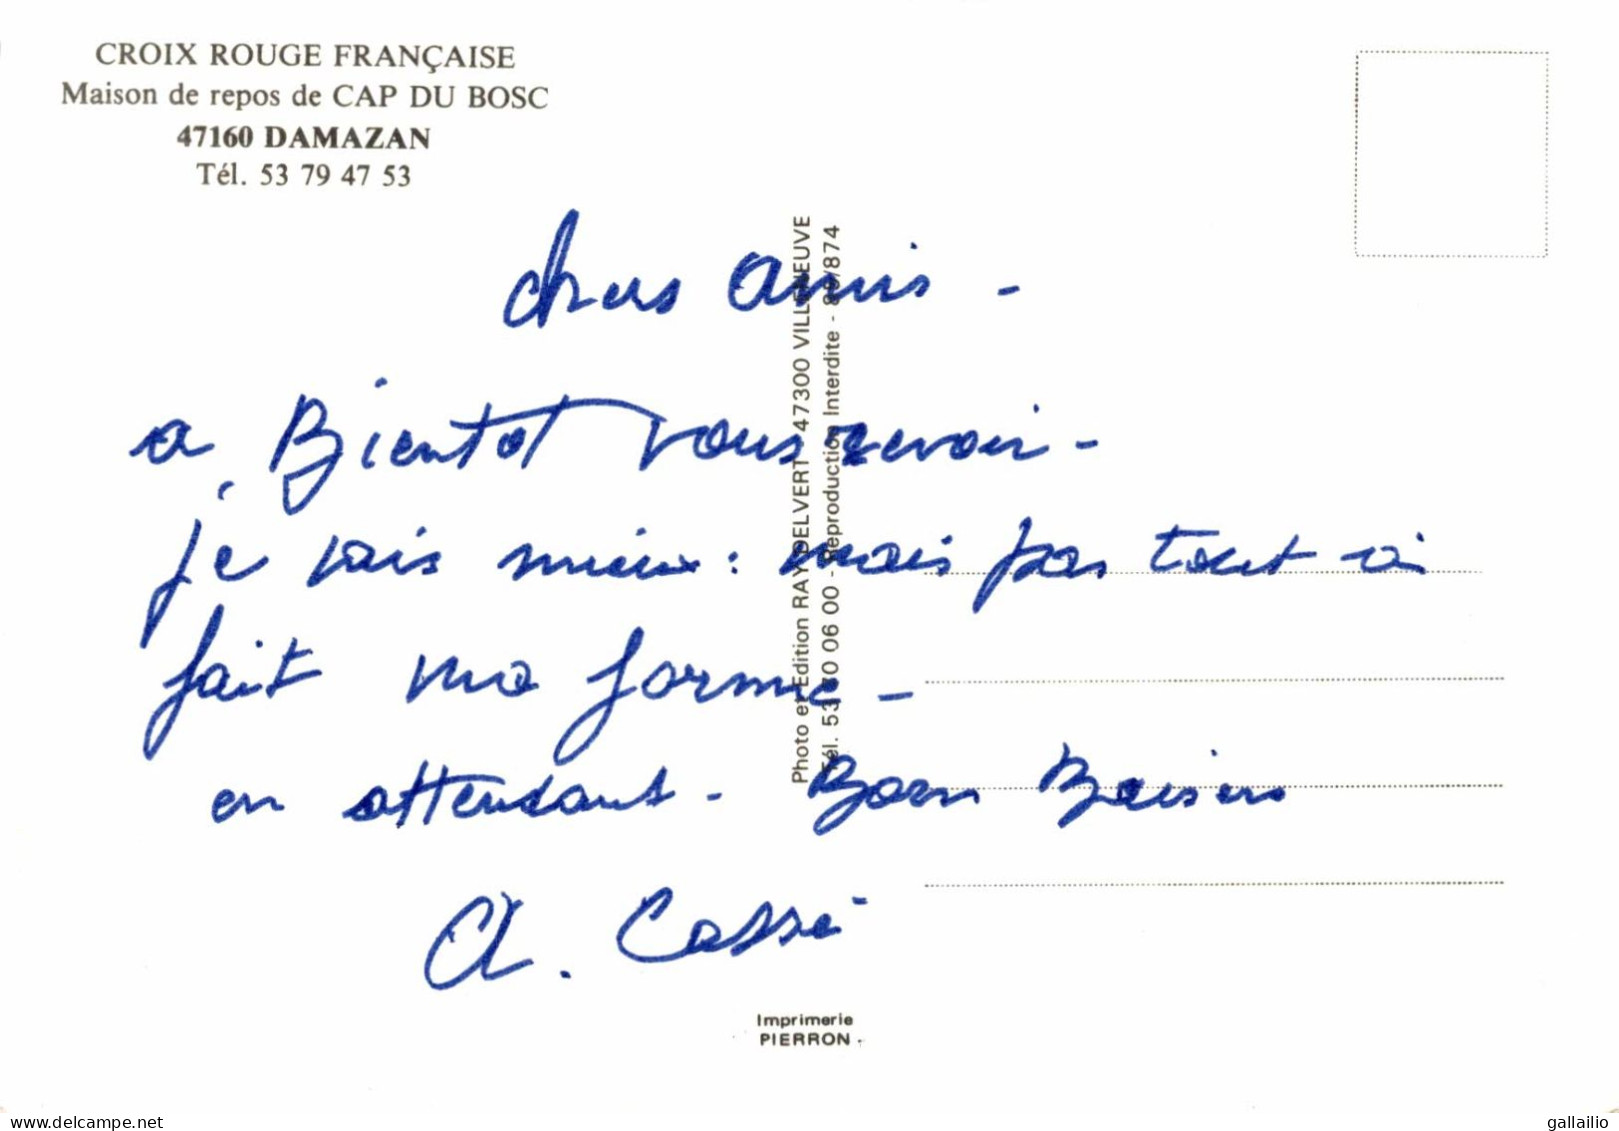 CROIX ROUGE FRANÇAISE
Maison de repos de CAP DU BOSC
47160 DAMAZAN
Tél. 53 79 47 53
chers amis -
a Bientot vous revoir -
je vais mieux : mais pas tout à
fait ma forme -
en attendant - Bons Baisers
A. Cassé
Photo et Edition RAY DELVERT 47300 VILLENEUVE
Tél. 53 60 06 00 - Reproduction Interdite - 874
Imprimerie
PIERRON -
delcampe.net
gallailio